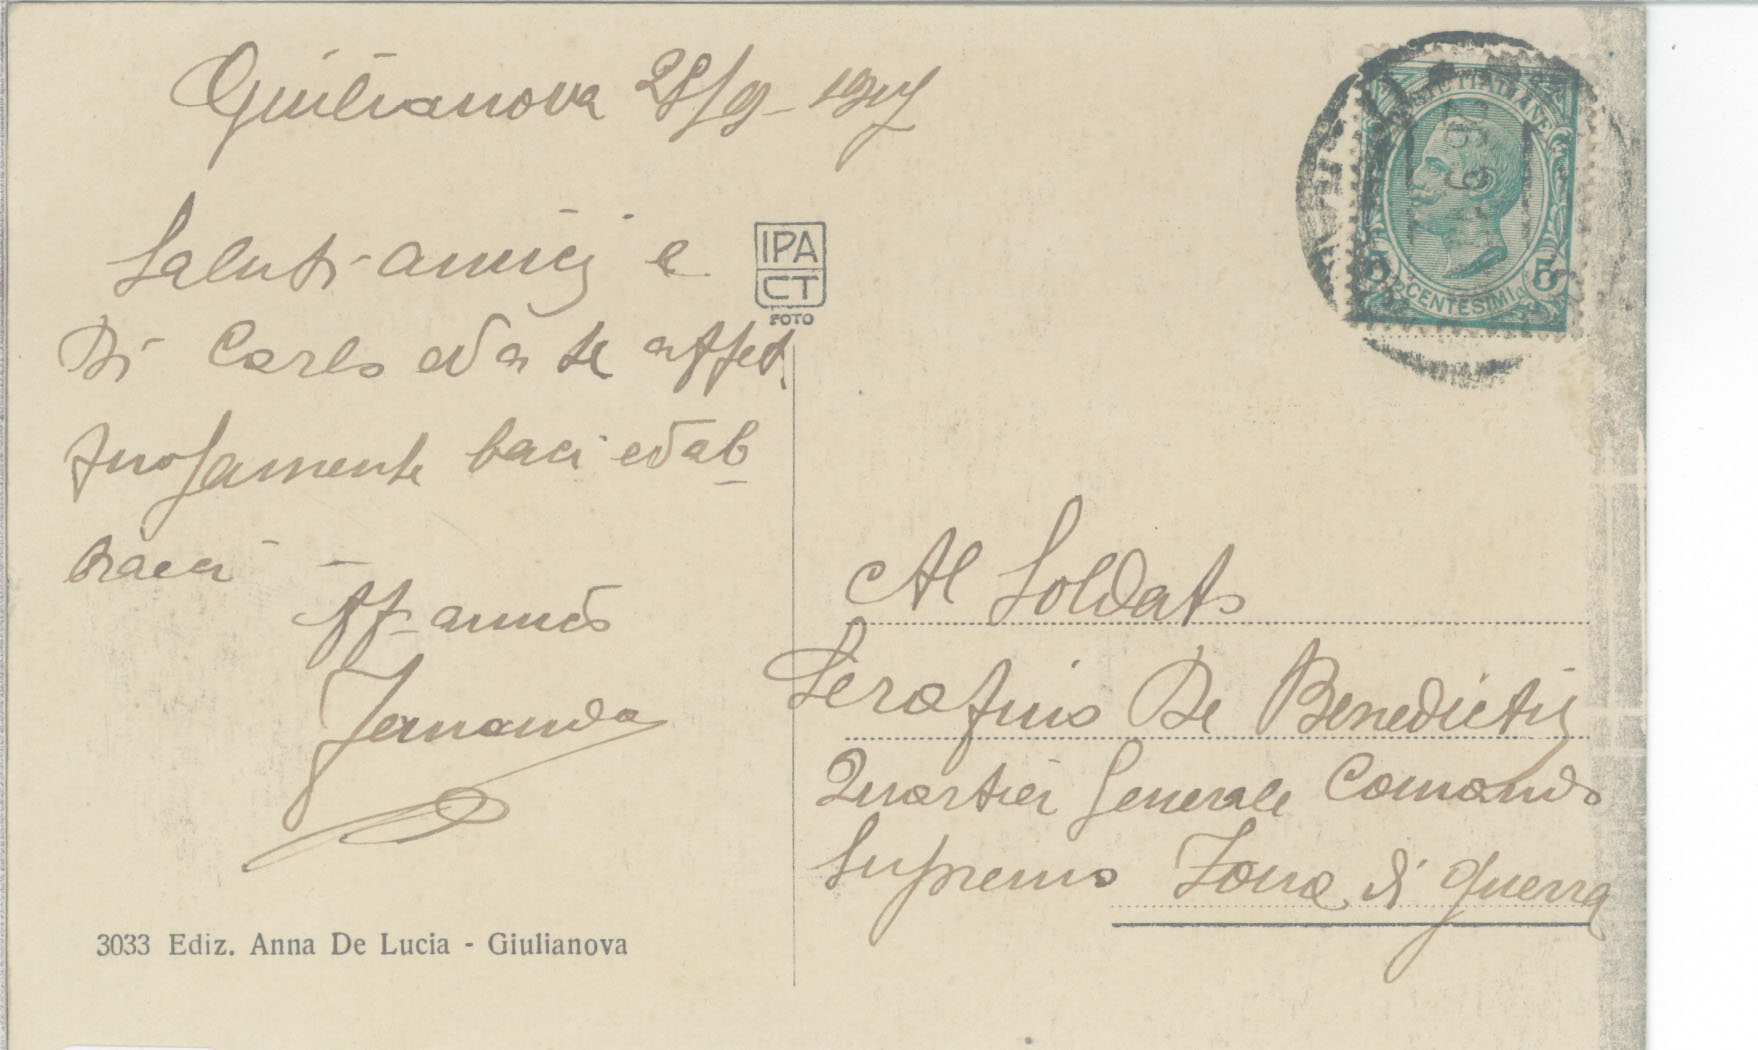 Giulianova 28/9-1917
Saluti amici e
Di Carlo ed a te affet
tuosamente baci ed ab
bracci
Aff. amico
Fernando
3033 Ediz. Anna De Lucia - Giulianova
IPA
CT
FOTO
POSTE ITALIANE
5 CENTESIMI 5
Al Soldato
Serafino De Benedictis
Quartier Generale Comando
Supremo Zona di guerra